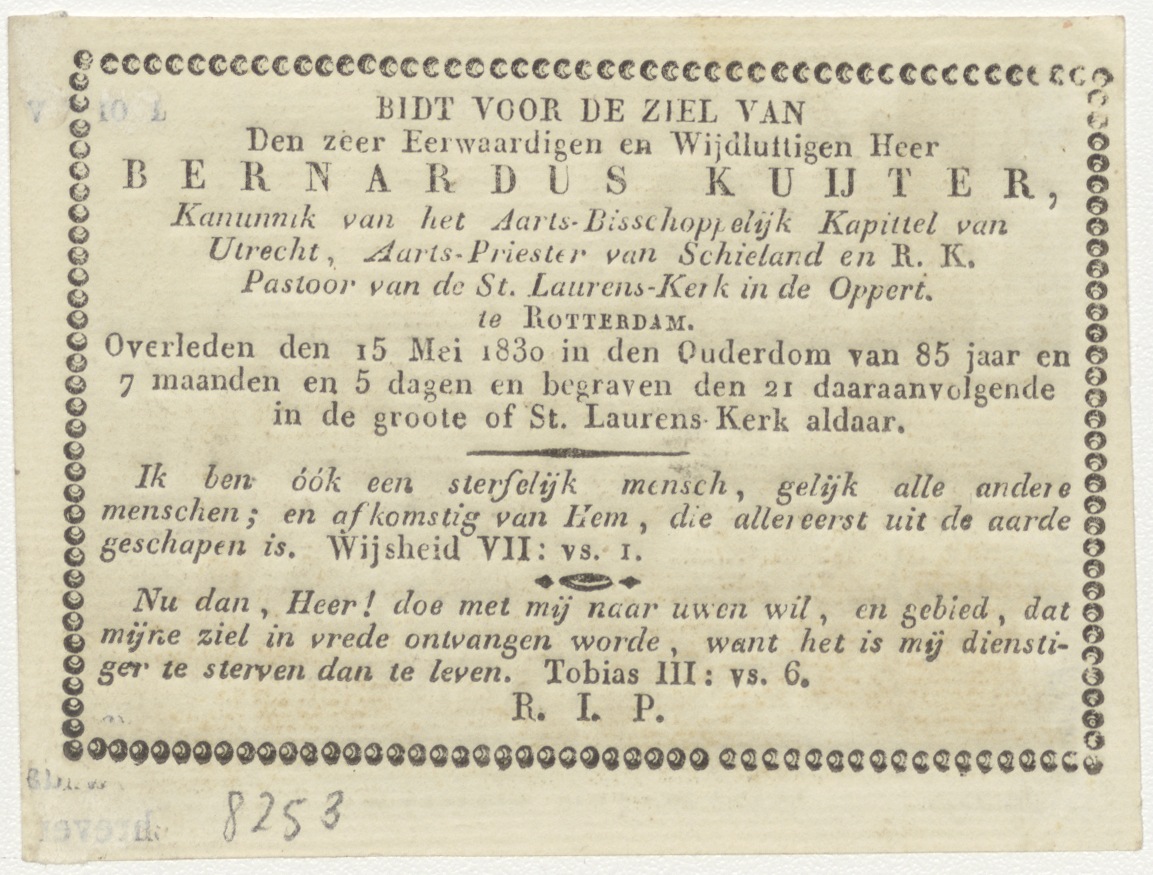 BIDT VOOR DE ZIEL VAN
Den zeer Eerwaardigen en Wijdluftigen Heer
BERNARDUS KUIJTER,
Kanunnik van het Aarts-Bisschoppelijk Kapittel van
Utrecht, Aarts-Priester van Schieland en R. K.
Pastoor van de St. Laurens-Kerk in de Oppert.
te ROTTERDAM.
Overleden den 15 Mei 1830 in den Ouderdom van 85 jaar en
7 maanden en 5 dagen en begraven den 21 daaraanvolgende
in de groote of St. Laurens-Kerk aldaar.
Ik ben óók een sterfelijk mensch, gelijk alle andere
menschen; en afkomstig van Hem, die allereerst uit de aarde
geschapen is. Wijsheid VII: vs. 1.
Nu dan, Heer! doe met mij naar uwen wil, en gebied, dat
mijne ziel in vrede ontvangen worde, want het is mij diensti-
ger te sterven dan te leven. Tobias III: vs. 6.
R. I. P.
8253